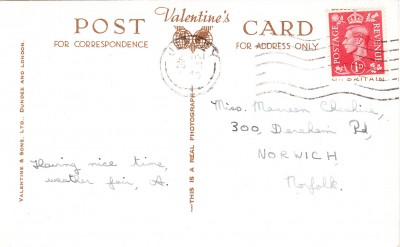 Valentine's
POST CARD
FOR CORRESPONDENCE
FOR ADDRESS ONLY
POSTAGE
REVENUE
1D
VALENTINE & SONS, LTD., DUNDEE AND LONDON.
—THIS IS A REAL PHOTOGRAPH—
Having nice time,
weather fair, A.
Miss. Maureen
300, Dereham Rd,
NORWICH
Norfolk.